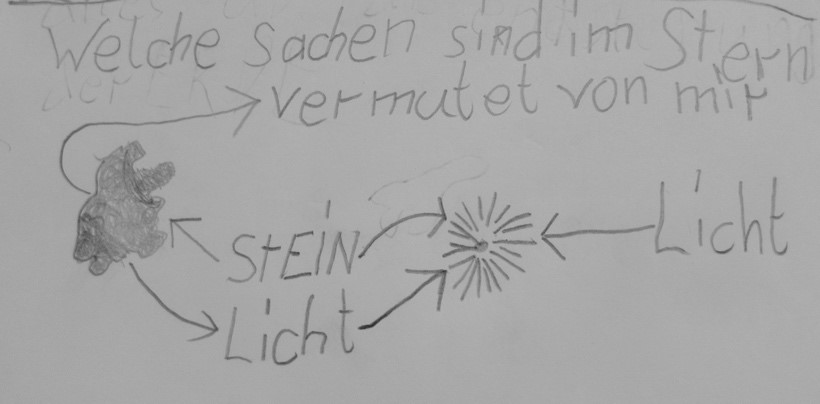 Welche Sachen sind im Stern
vermutet von mir
StEiN
Licht
Licht